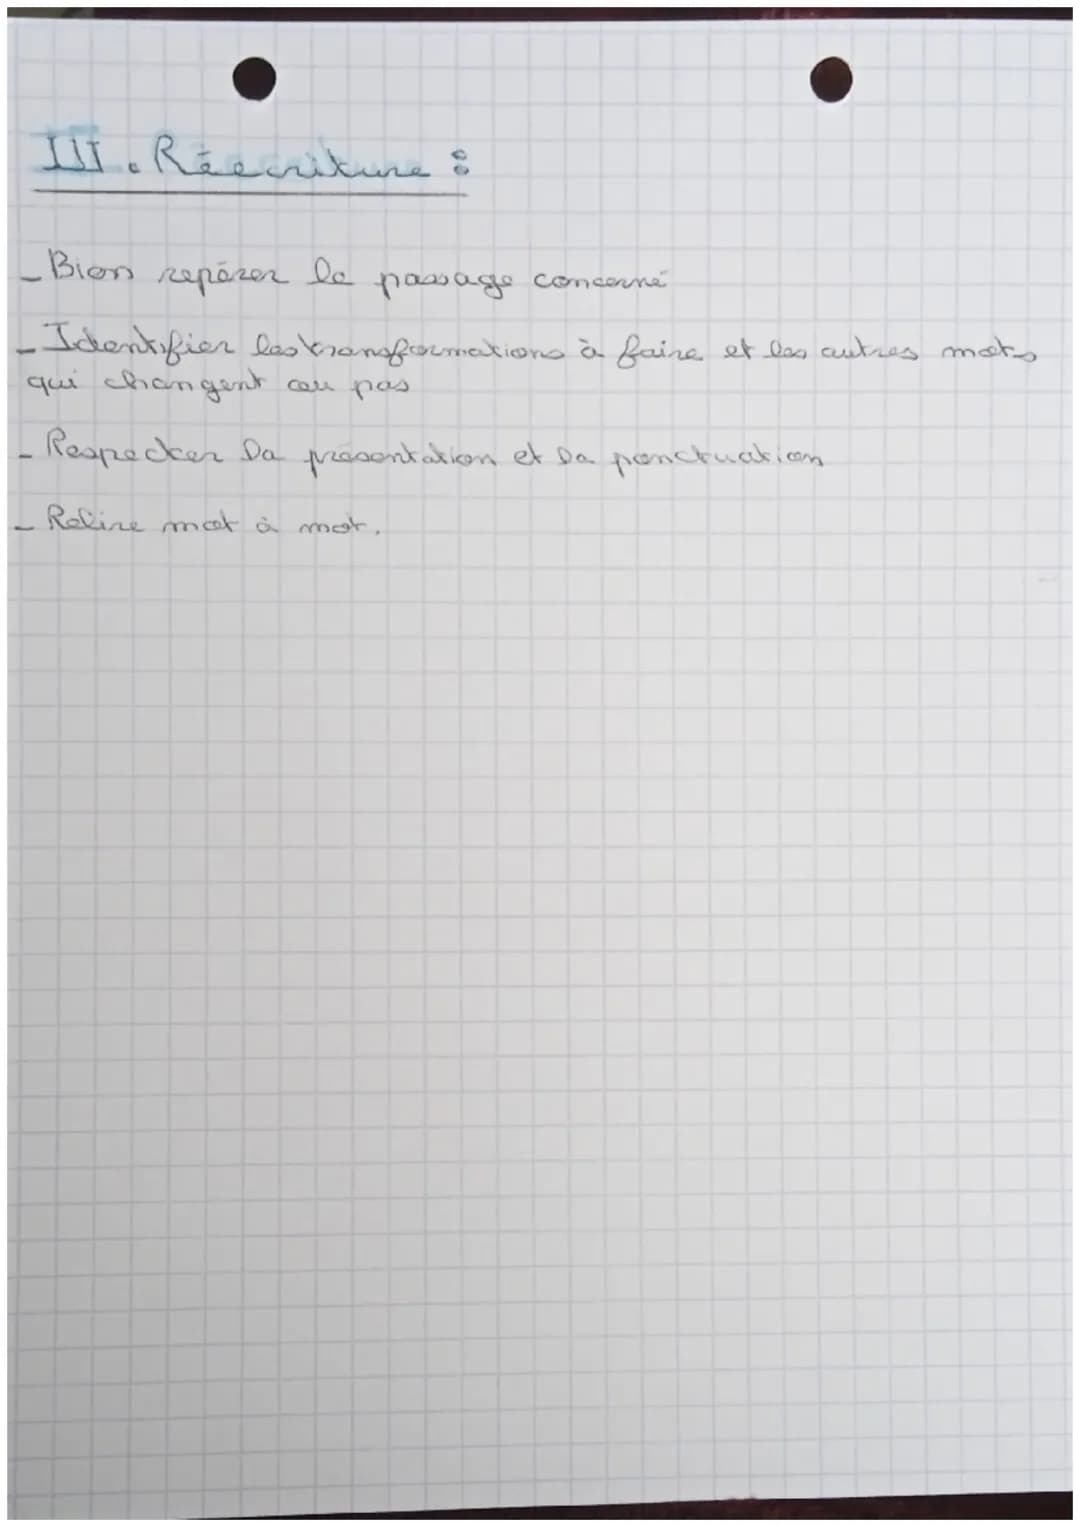 III. Réecriture :
_ Bien repérer le passage concerné
_ Identifier les transformations à faire et les autres mots
qui changent ou pas
_ Respecter la présentation et la ponctuation
_ Relire mot à mot.